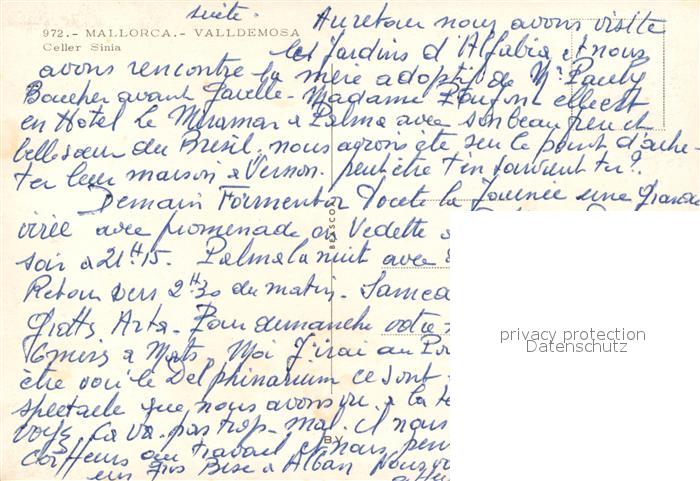 suite.
Au retour nous avons visité
972.- MALLORCA.- VALLDEMOSA
Celler Sinia
les jardins d'Alfabia et nous
avons rencontré la mère adoptif de Mr Pauly
Boucher avant Javelle - Madame elle est
en Hotel le Miramar a Palma avec son beau frere et
belle sœur du Bresil. nous avons été sur le point d'ache-
ter leur maison a Vernon. peut être t'en souvient tu?
Demain Formentor toute la Journée une Grande
virée avec promenade en Vedette
soir a 21H15. Palma la nuit avec
Retour vers 2H30 du matin - Samed
Grottes Arta - Pour dimanche votre
a Moi J'irai au Por
être voir le Delphinarium ce sont
spectacle que nous avons vu a la te
voyez. Ca va pas trop mal. il nous
coiffeurs au travail et nous pen
BV.
en Gros Bise a Alban Nous
privacy protection
Datenschutz